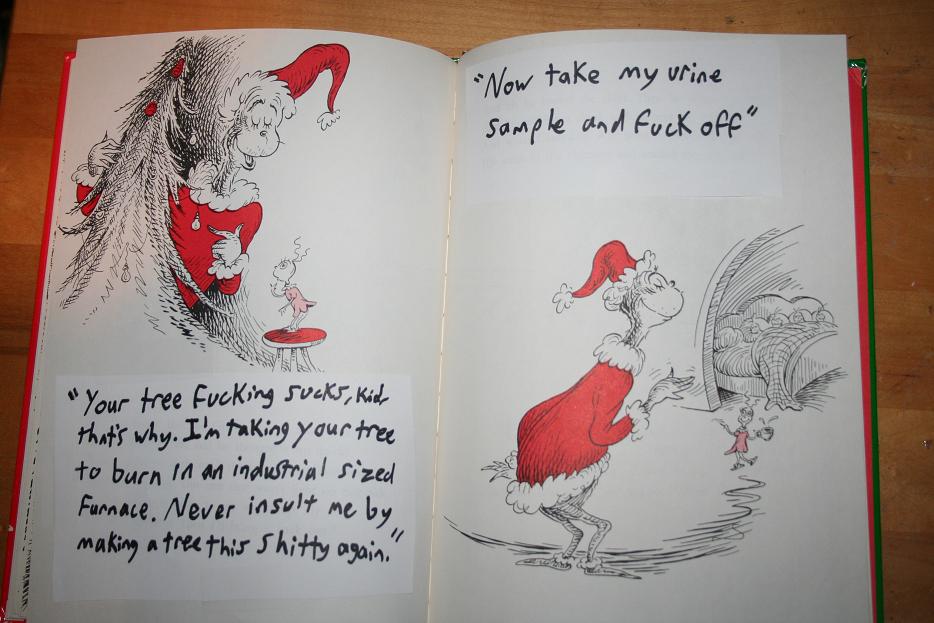 "Your tree Fucking sucks, kid,
that's why. I'm taking your tree
to burn in an industrial sized
Furnace. Never insult me by
making a tree this shitty again."
"Now take my urine
sample and Fuck off"